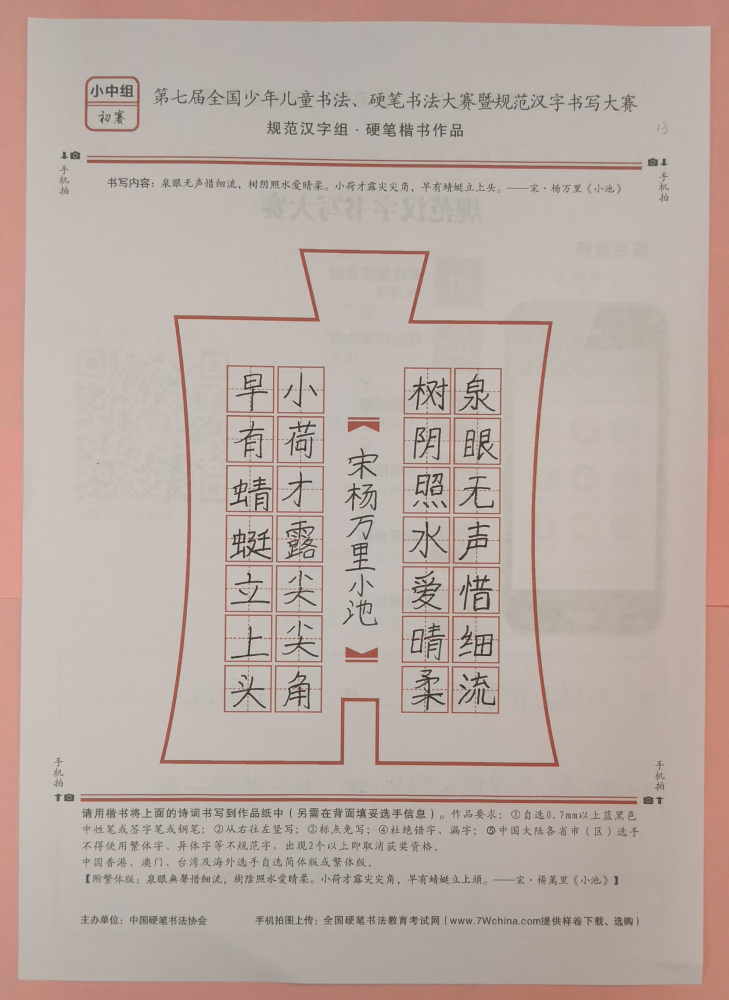 小中组
初赛
第七届全国少年儿童书法、硬笔书法大赛暨规范汉字书写大赛
规范汉字组·硬笔楷书作品
13
手机拍
手机拍
书写内容：泉眼无声惜细流，树阴照水爱晴柔。小荷才露尖尖角，早有蜻蜓立上头。——宋·杨万里《小池》
泉眼无声惜细流
树阴照水爱晴柔
宋杨万里小池
小荷才露尖尖角
早有蜻蜓立上头
手机拍
手机拍
请用楷书将上面的诗词书写到作品纸中（另需在背面填妥选手信息）。作品要求：①自选0.7mm以上蓝黑色
中性笔或签字笔或钢笔；②从右往左竖写；③标点免写；④杜绝错字、漏字；⑤中国大陆各省市（区）选手
不得使用繁体字、异体字等不规范字，出现2个以上即取消获奖资格，
中国香港、澳门、台湾及海外选手自选简体版或繁体版。
【附繁体版：泉眼無聲惜细流，樹陰照水爱晴柔。小荷才露尖尖角，早有蜻蜓立上頭。——宋·楊萬里《小池》】
主办单位：中国硬笔书法协会
手机拍图上传：全国硬笔书法教育考试网（www.7Wchina.com提供样卷下载、选购）